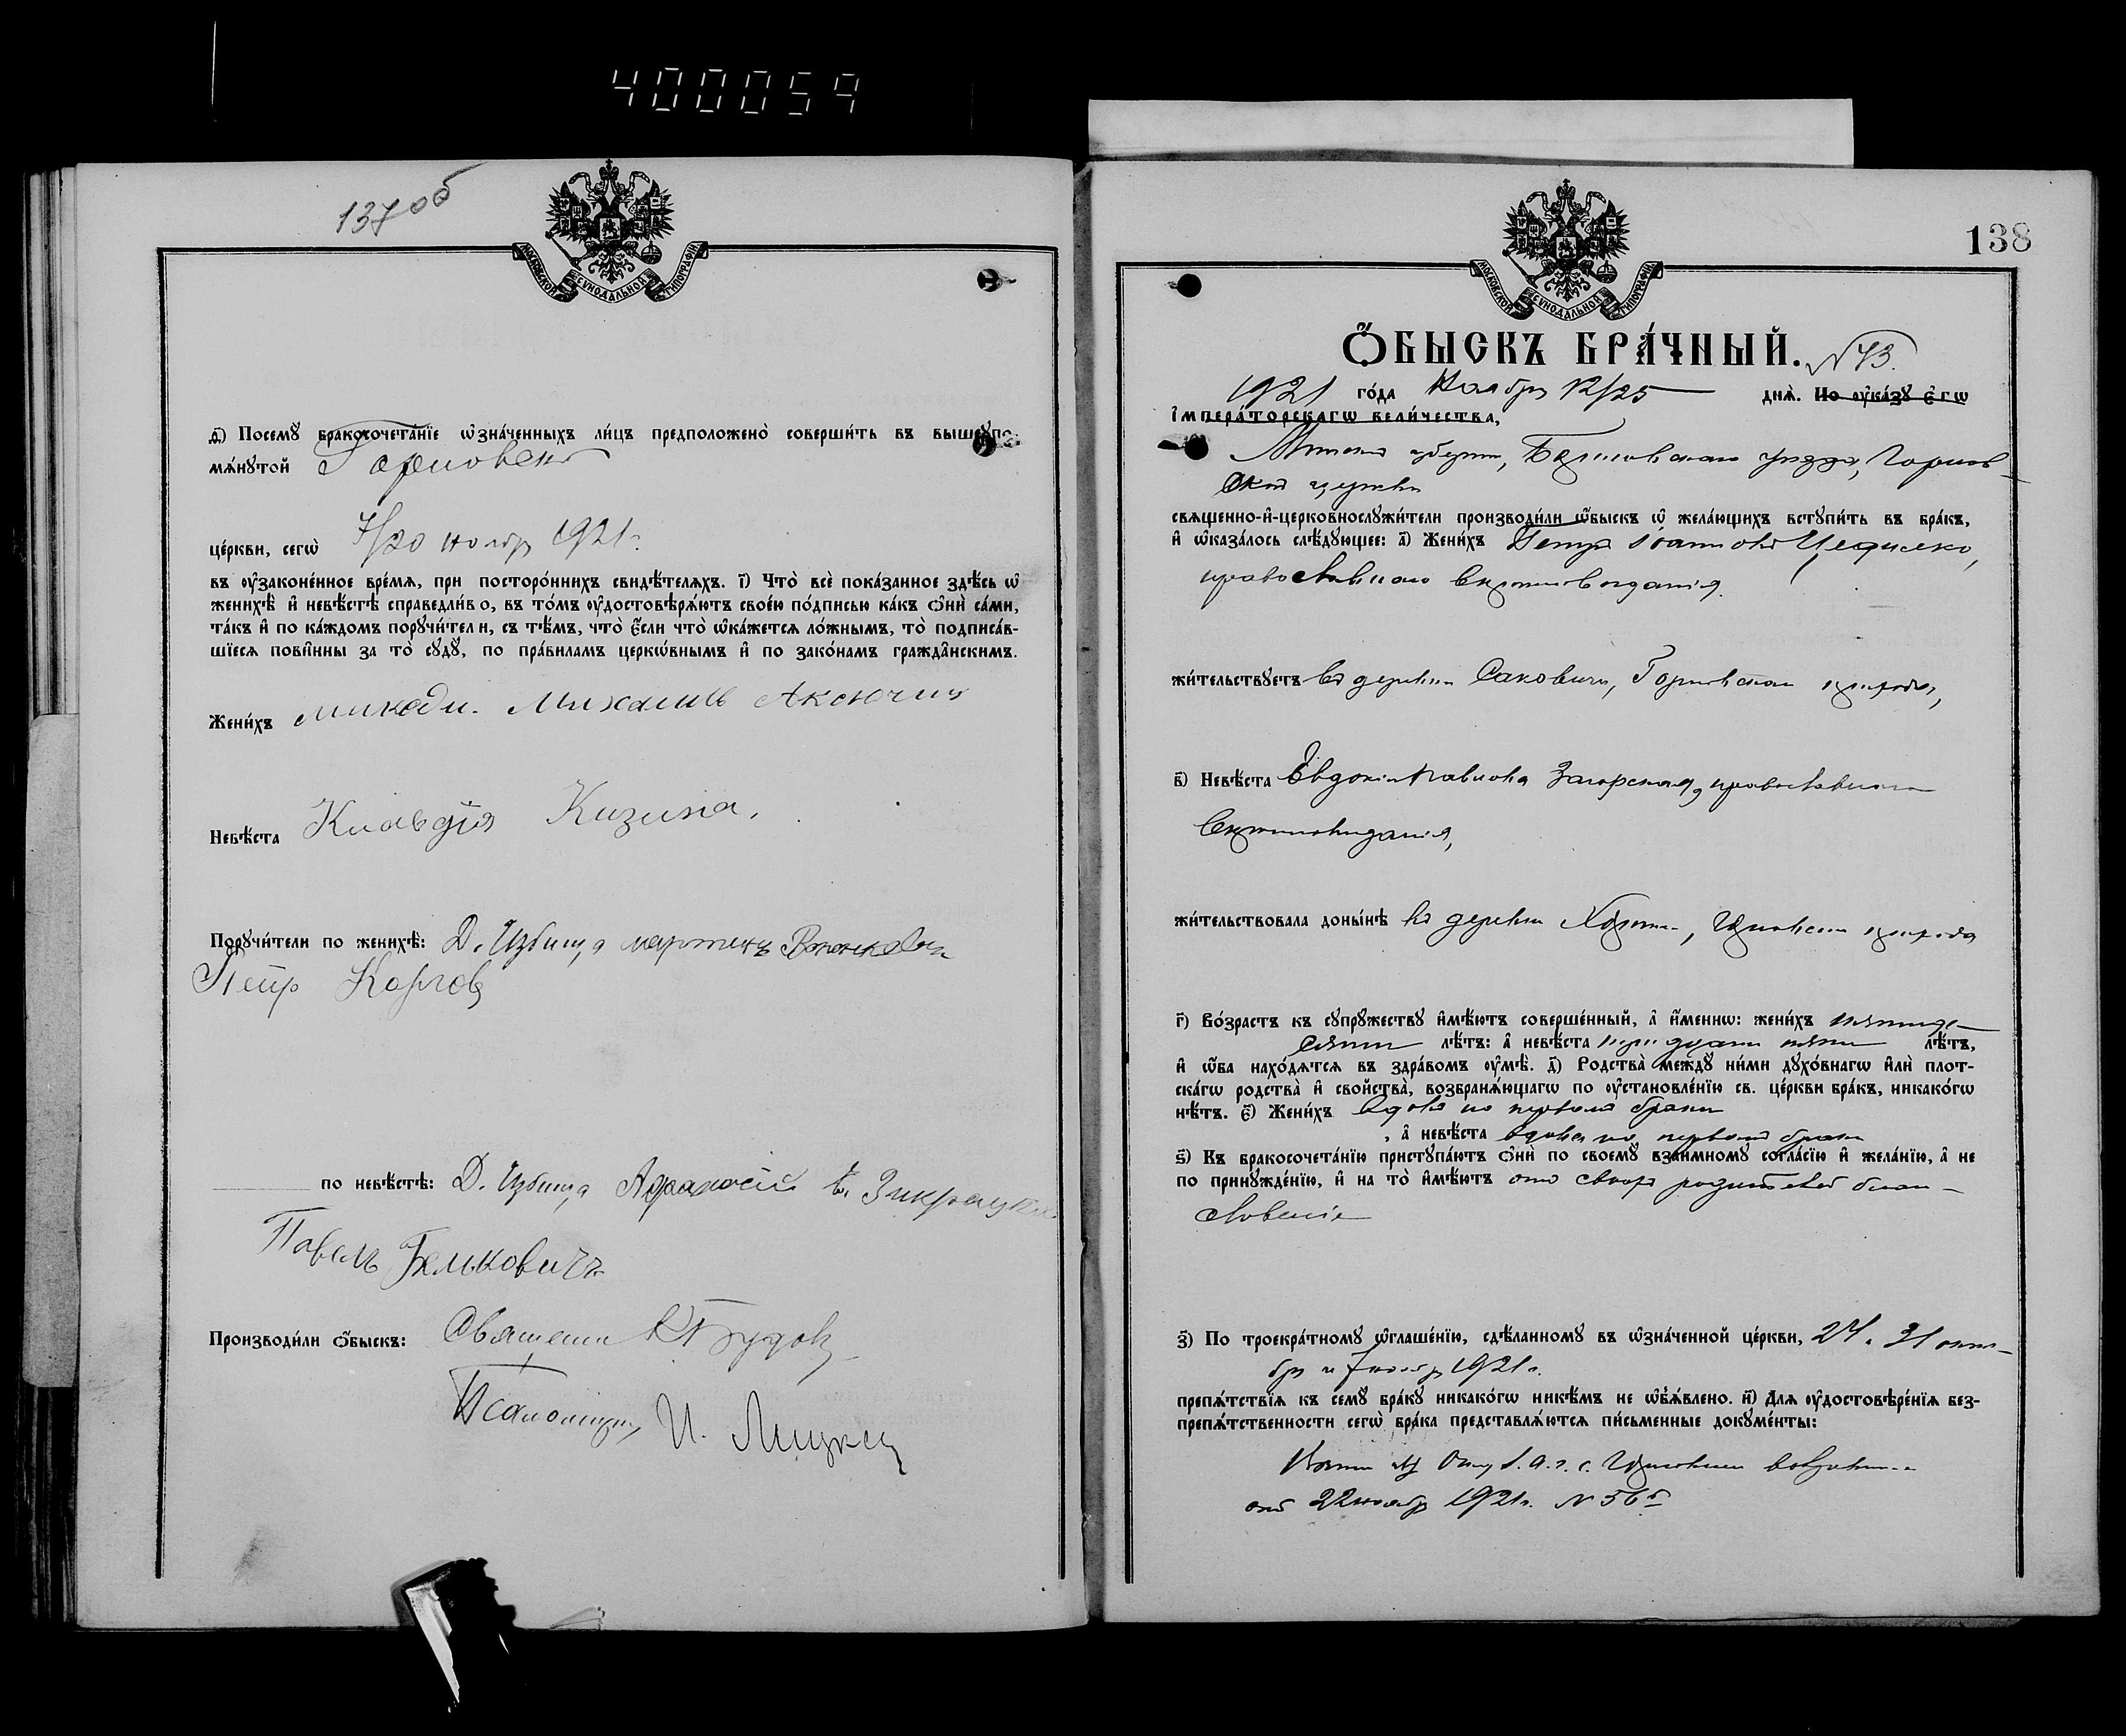 400059
137об
МОСКОВСКОЙ СѴНОДАЛЬНОЙ ТИПОГРАФІИ
ѳ҃) Посемꙋ̀ бракосочета́нїе ѡ҆зна́ченныхъ ли́цъ предположено̀ соверши́ть въ вышеꙋпо-
мѧ́нꙋтой Горновской
це́ркви, сегѡ̀ 7/20 ноября 1921 г.
въ ᲂу҆законе́нное вре́мѧ, при посторо́ннихъ свидѣ́телѧхъ. і҃) Что̀ всѐ пока́занное здѣ́сь ѡ҆
женихѣ̀ и҆ невѣ́стѣ справедли́во, въ то́мъ ᲂу҆достовѣрѧ́ютъ свое́ю по́дписью ка́къ ѻ҆нѝ са́ми,
та́къ и҆ по ка́ждомъ порꙋчи́тели, съ тѣ́мъ, что̀ є҆́сли что̀ ѡ҆ка́жетсѧ ло́жнымъ, то̀ подписа́в-
шїесѧ пови́нны за то̀ сꙋдꙋ̀, по пра́виламъ церкѡ́внымъ и҆ по зако́намъ гражда̑нскимъ.
Жени́хъ Михаиловъ Аксючиц
Невѣ́ста Клавдія Кизина.
Порꙋчи́тели по женихѣ̀: Д. Избища мартинъ
Петр Карпов
по невѣ́стѣ: Д. Избища
Павелъ
Производи́ли ѻ҆́быскъ: Священн
Псаломщикъ И.
138
МОСКОВСКОЙ СѴНОДАЛЬНОЙ ТИПОГРАФІИ
Ѻ҆́БЫСКЪ БРА́ЧНЫЙ. N 73.
1921 го́да Ноября 12/25 днѧ̀. По ᲂу҆ка́зꙋ є҆гѡ̀
і҆мпера́торскагѡ вели́чества,
Минской губерніи, Борисовскаго уѣзда, Горнов-
ской церкви
свѧщенно-и҆-церковнослꙋжи́тели производи́ли ѡ҆́быскъ ѡ҆ жела́ющихъ встꙋпи́ть въ бра́къ,
и҆ ѡ҆каза́лось слѣ́дꙋющее: а҃) Жени́хъ Петръ Іоанновъ
православнаго вѣроисповѣданія.
жи́тельствꙋетъ въ деревни Саковичи, Горновскаго прихода,
в҃) Невѣ́ста Евдокія Павлова Загорская, православнаго
вѣроисповѣданія,
жи́тельствовала доны́нѣ въ деревни прихода
г҃) Во́зрастъ къ сꙋпрꙋ́жествꙋ и҆мѣ́ютъ соверше́нный, а҆ и҆́меннѡ: жени́хъ пятиде-
сяти лѣ́тъ: а҆ невѣ́ста тридцати пяти лѣ́тъ,
и҆ ѻ҆́ба нахо́дѧтсѧ въ здра́вомъ ᲂу҆мѣ̀. д҃) Родства̀ междꙋ̀ ни́ми дꙋхо́внагѡ и҆лѝ плот-
ска́гѡ родства̀ и҆ свойства̀, возбранѧ́ющагѡ по ᲂу҆становле́нїю св. це́ркви бра́къ, никако́гѡ
нѣ́тъ. є҃) Жени́хъ вдовъ по первомъ бракѣ
, а҆ невѣ́ста вдова по первомъ бракѣ
ѕ҃) Къ бракосочета́нїю пристꙋпа́ютъ ѻ҆нѝ по своемꙋ̀ взаи́мномꙋ согла́сїю и҆ жела́нїю, а҆ не
по принꙋжде́нїю, и҆ на то̀ и҆мѣ́ютъ отъ своихъ родителей благо-
словеніе
з҃) По троекра́тномꙋ ѡ҆глаше́нїю, сдѣ́ланномꙋ въ ѡ҆зна́ченной це́ркви, 24. 31 октя-
бря и 7 ноября 1921 г.
препѧ́тствїѧ къ семꙋ̀ бра́кꙋ никако́гѡ никѣ́мъ не ѡ҆б̾ѧ́влено. и҃) Длѧ ᲂу҆достовѣре́нїѧ без-
препѧ́тственности сегѡ̀ бра́ка представлѧ́ютсѧ пи́сьменные докꙋме́нты:
от 22 ноября 1921 г. N 56